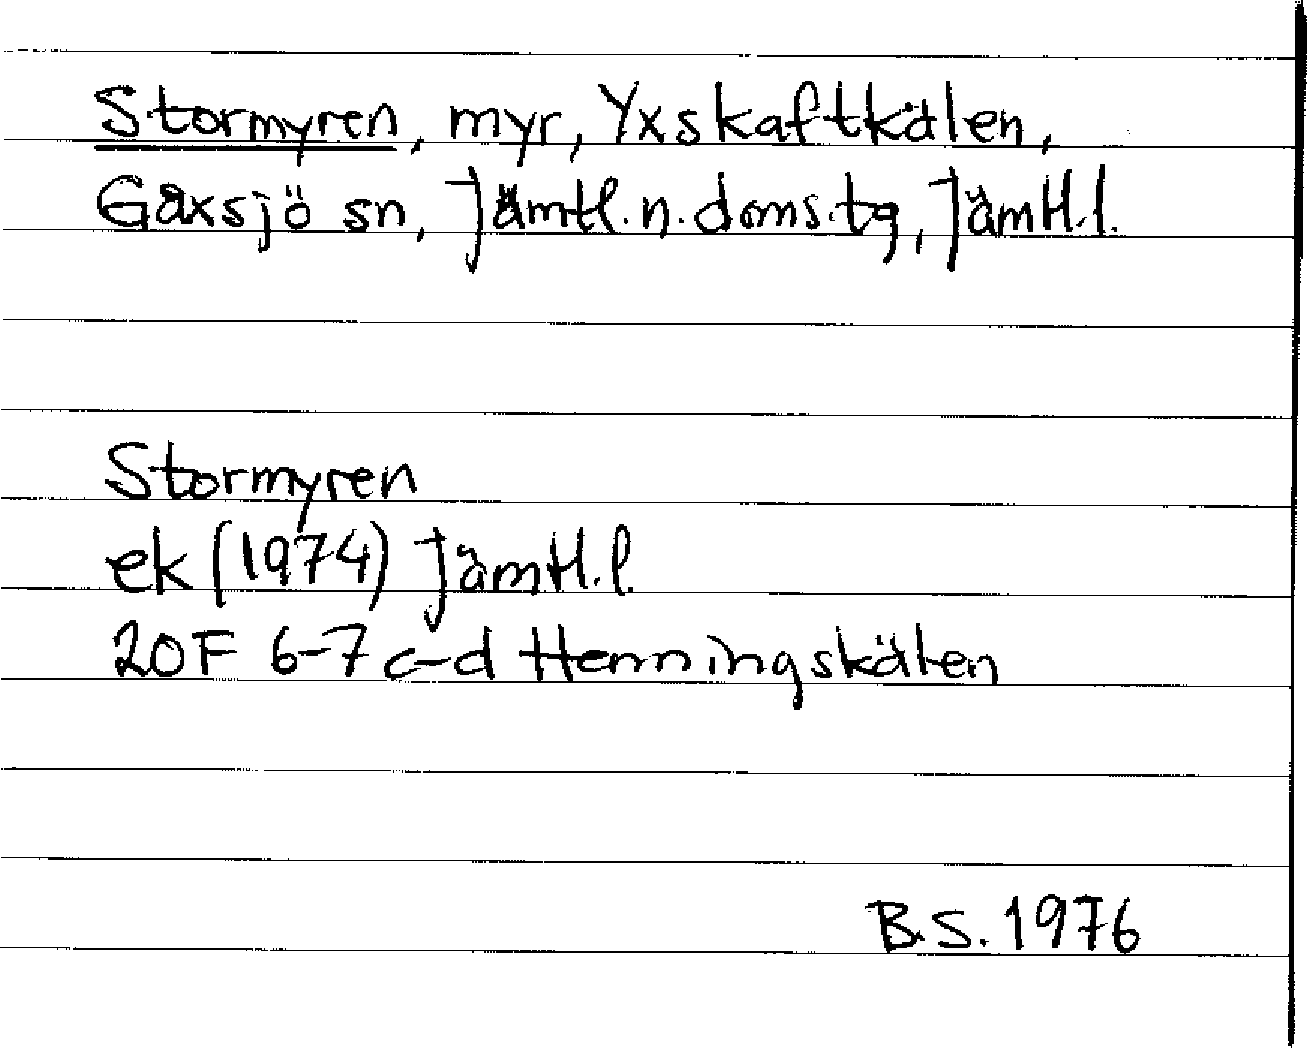 Stormyren, myr, Yxskaftkälen,
Gåxsjö sn, Jämtl. n. doms.tg, Jämtl.l.
Stormyren
ek (1974) Jämtl.l.
20F 6-7 c-d Henningskälen
B.S. 1976